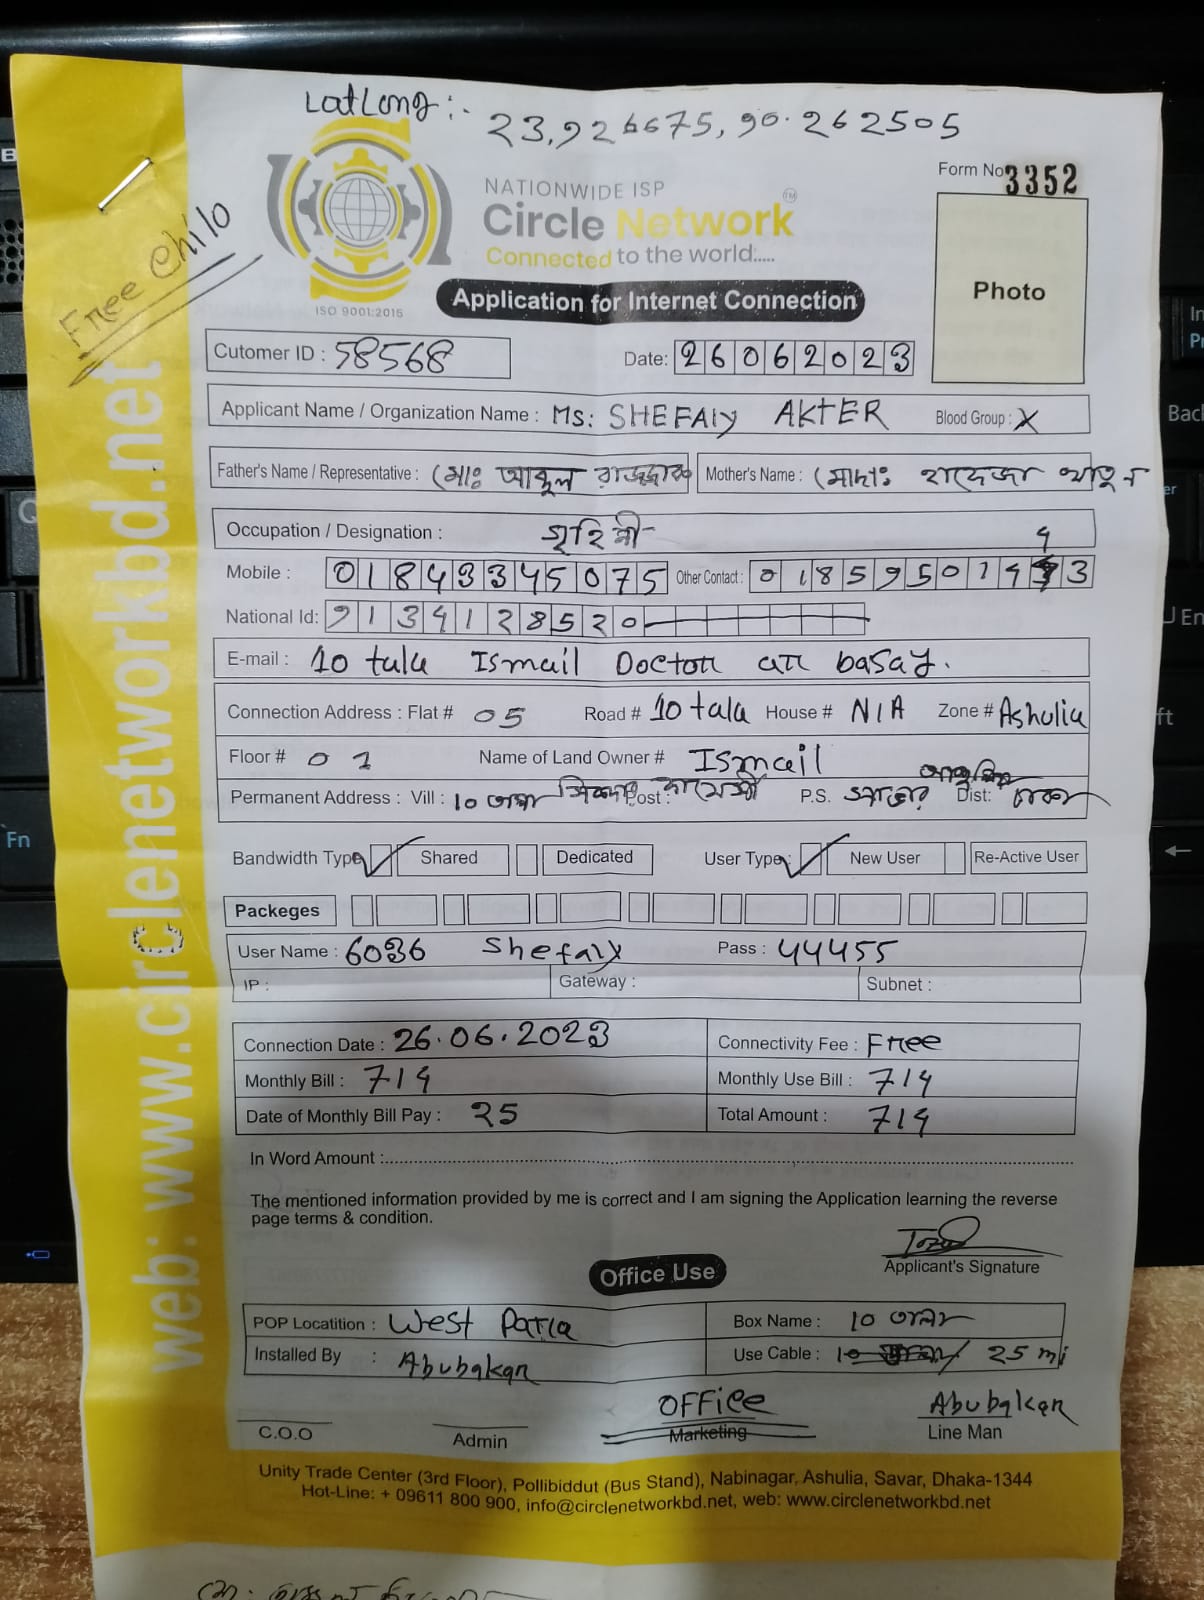 LatLong:- 23,926675, 90.262505
Form No 3352
NATIONWIDE ISP
Circle Network
TM
Connected to the world.....
ISO 9001:2015
Free Chilo
Application for Internet Connection
Photo
Cutomer ID : 58568
Date: 26062023
Applicant Name / Organization Name : Ms: SHEFALY AKTER
Blood Group : X
Father's Name / Representative : মোঃ আব্দুল রাজ্জাক
Mother's Name : মোসাঃ হাদেজা খাতুন
Occupation / Designation : গৃহিনী
Mobile : 01843345075
Other Contact : 01859501943
National Id: 9134128520
E-mail : 10 tala Ismail Doctor ar basay.
Connection Address : Flat # 05 Road # 10 tala House # N/A Zone # Ashulia
Floor # 01 Name of Land Owner # Ismail
Permanent Address : Vill : 10 তালা Post : P.S. সাভার Dist: ঢাকা
Bandwidth Type Shared Dedicated User Type: New User Re-Active User
Packeges
User Name : 6036 Shefaly Pass : 44455
IP : Gateway : Subnet :
Connection Date : 26.06.2023 Connectivity Fee : Free
Monthly Bill : 714 Monthly Use Bill : 714
Date of Monthly Bill Pay : 25 Total Amount : 714
In Word Amount :
The mentioned information provided by me is correct and I am signing the Application learning the reverse
page terms & condition.
Applicant's Signature
Office Use
POP Locatition : West Para Box Name : 10 তালা
Installed By : Abubakar Use Cable : 25 mi
OFFice Abubakar
C.O.O Admin Marketing Line Man
Unity Trade Center (3rd Floor), Pollibiddut (Bus Stand), Nabinagar, Ashulia, Savar, Dhaka-1344
Hot-Line: + 09611 800 900, info@circlenetworkbd.net, web: www.circlenetworkbd.net
web: www.circlenetworkbd.net